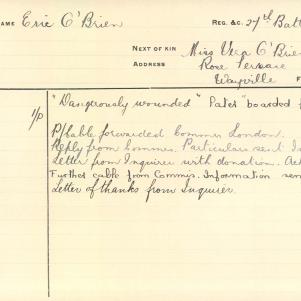 NAME Eric O'Brien REG. &C. 27th Batt
NEXT OF KIN Miss Vera O'Brien
ADDRESS Rose Terrace
Wayville
"Dangerously wounded" "Pater" boarded f
1/p P/Cable forwarded Commr London.
Reply from Commr. Particulars sent In
Letter from Inquirer with donation. Ack
Further cable from Commis. Information sen
Letter of thanks from Inquirer.